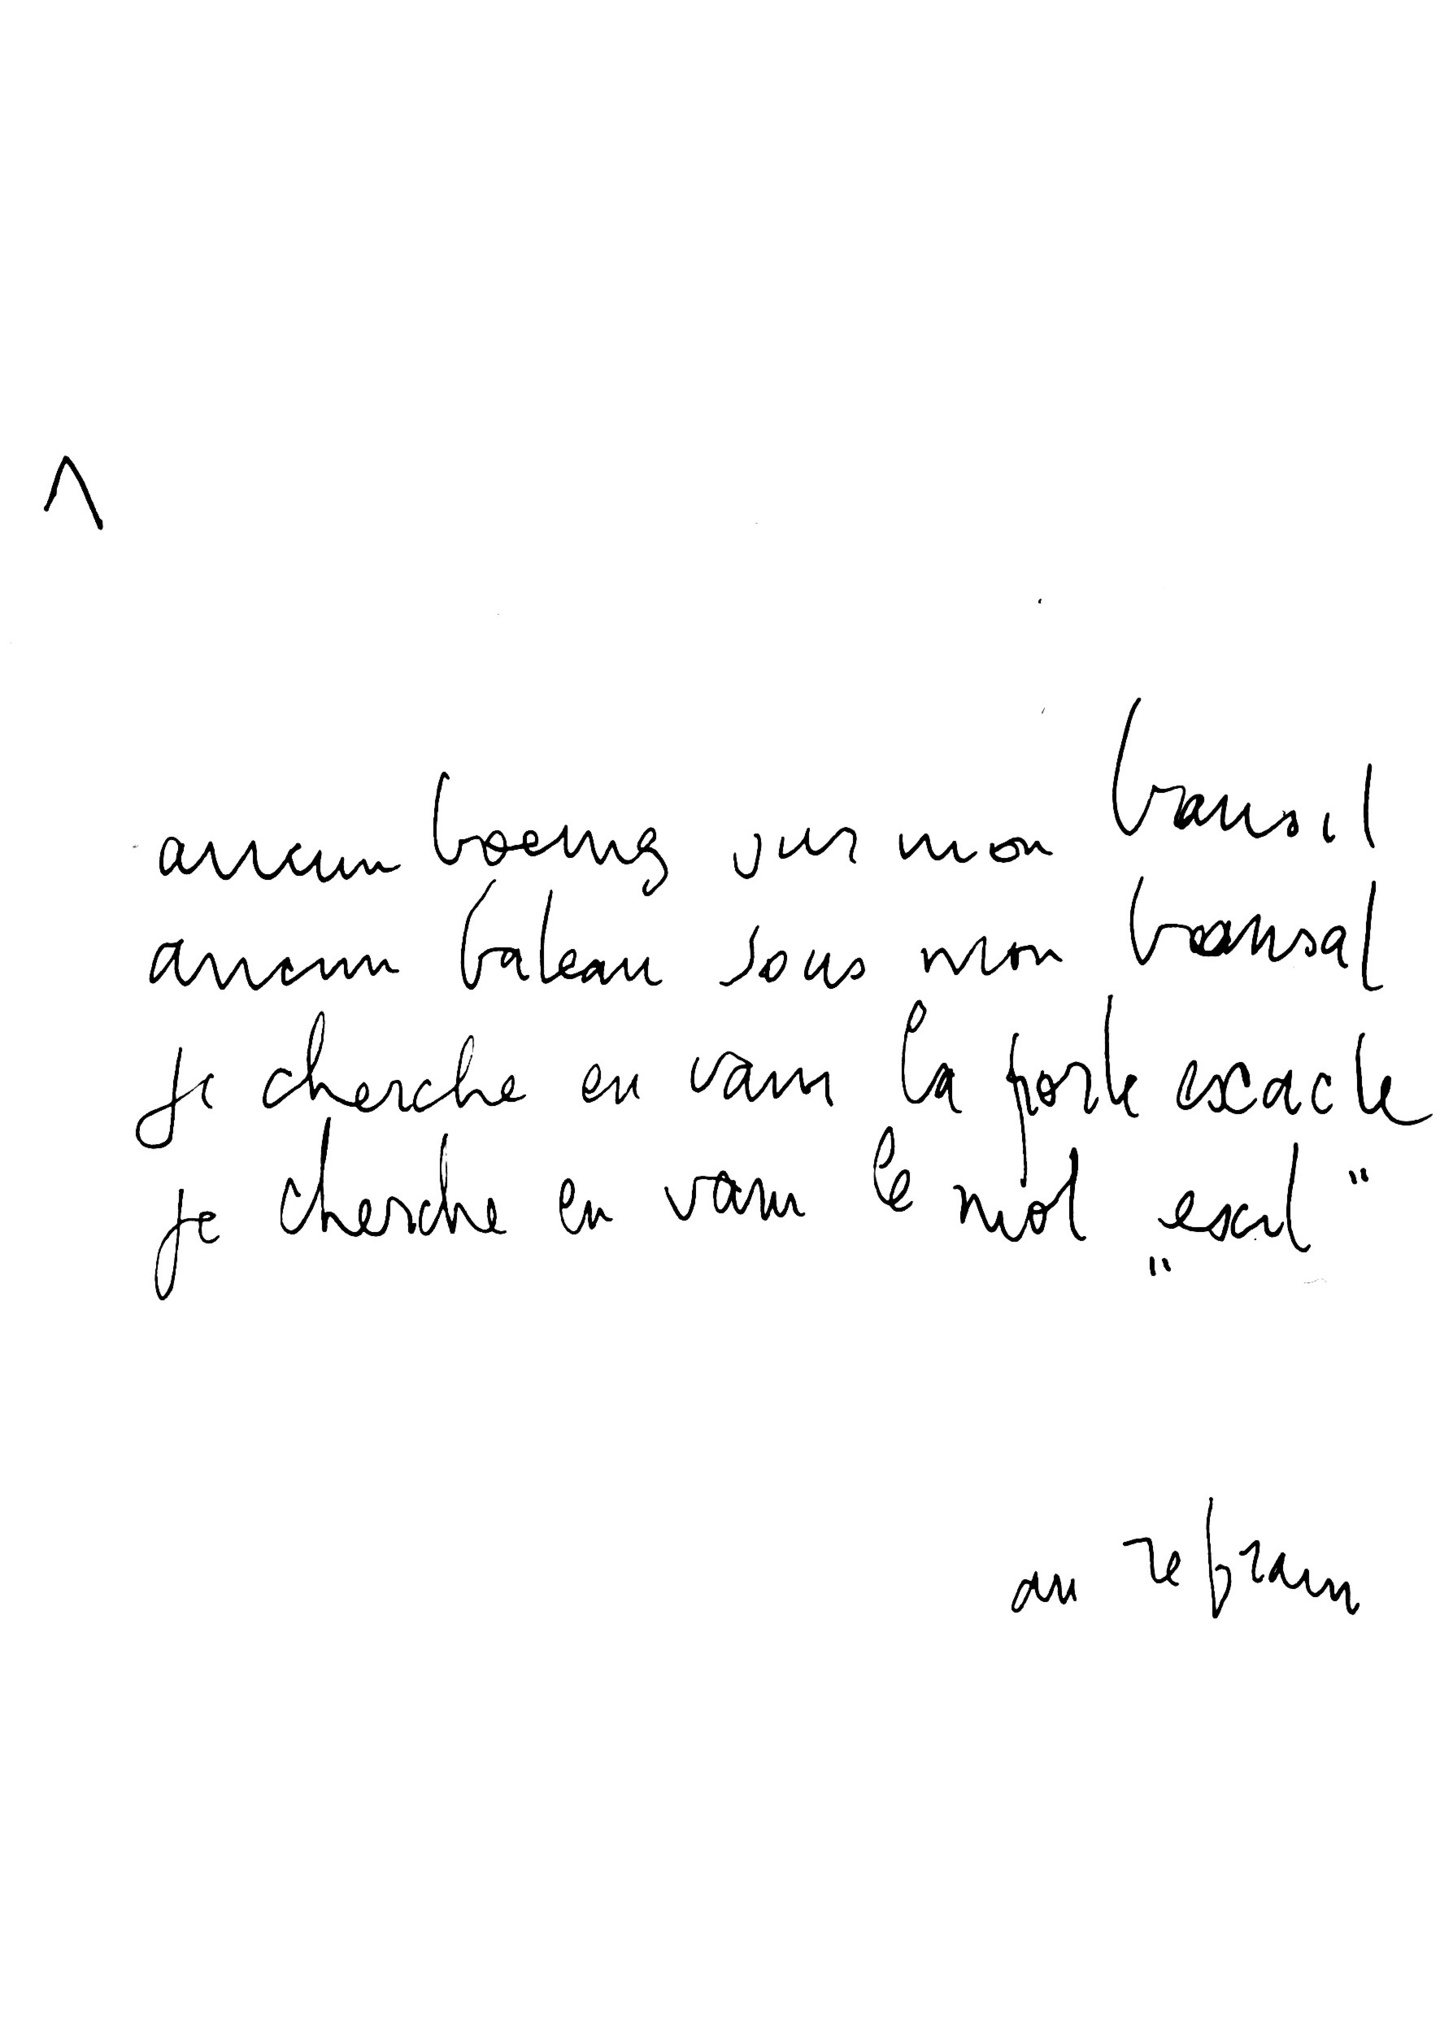 1
aucun boeing sur mon transit
aucun bateau sous mon transat
je cherche en vain la porte exacte
je cherche en vain le mot „exil"
au refrain